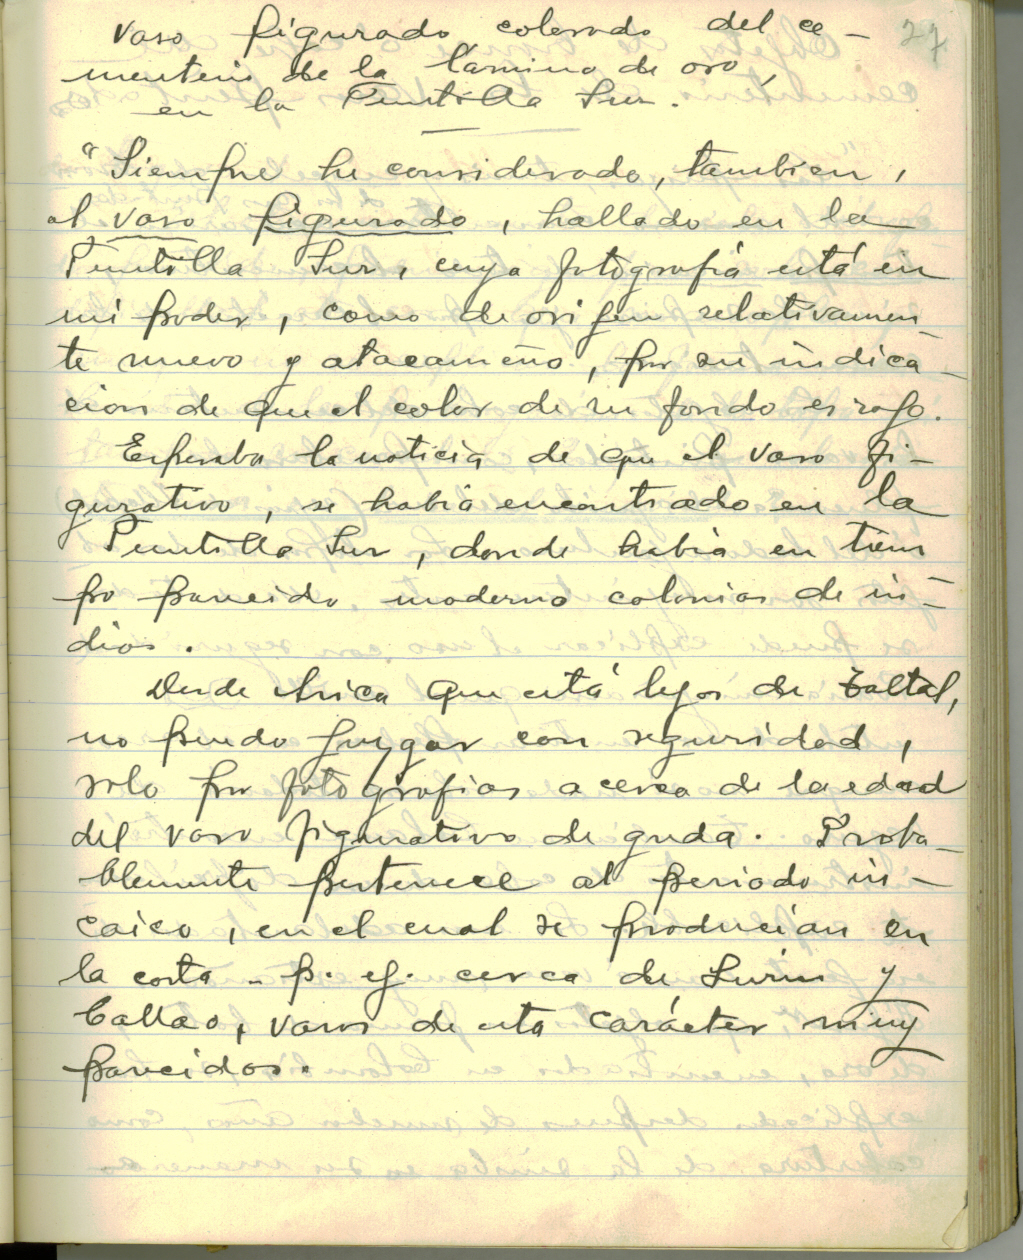 27
Vaso figurado colorado del ce-
menterio de la lamina de oro,
en la Puntilla Sur.
"Siempre he considerado, tambien,
al vaso figurado, hallado en la
Puntilla Sur, cuya fotografiá está en
mi poder, como de origen relativamen-
te nuevo y atacameño, por su indica-
cion de que el color de su fondo es rojo.
Esperaba la noticia de que el vaso fi-
gurativo, se habia encontrado en la
Puntilla Sur, donde habia en tiem
po parecido, moderno colonias de in-
dios.
Desde Arica que está lejos de Taltal,
no puedo juzgar con seguridad,
solo por fotografias acerca de la edad
del vaso figurativo de greda. Proba-
blemente pertenece al periodo in-
caico, en el cual se producian en
la costa - p. ej. cerca de Lurin y
Callao, vasos de esta carácter muy
parecidos.